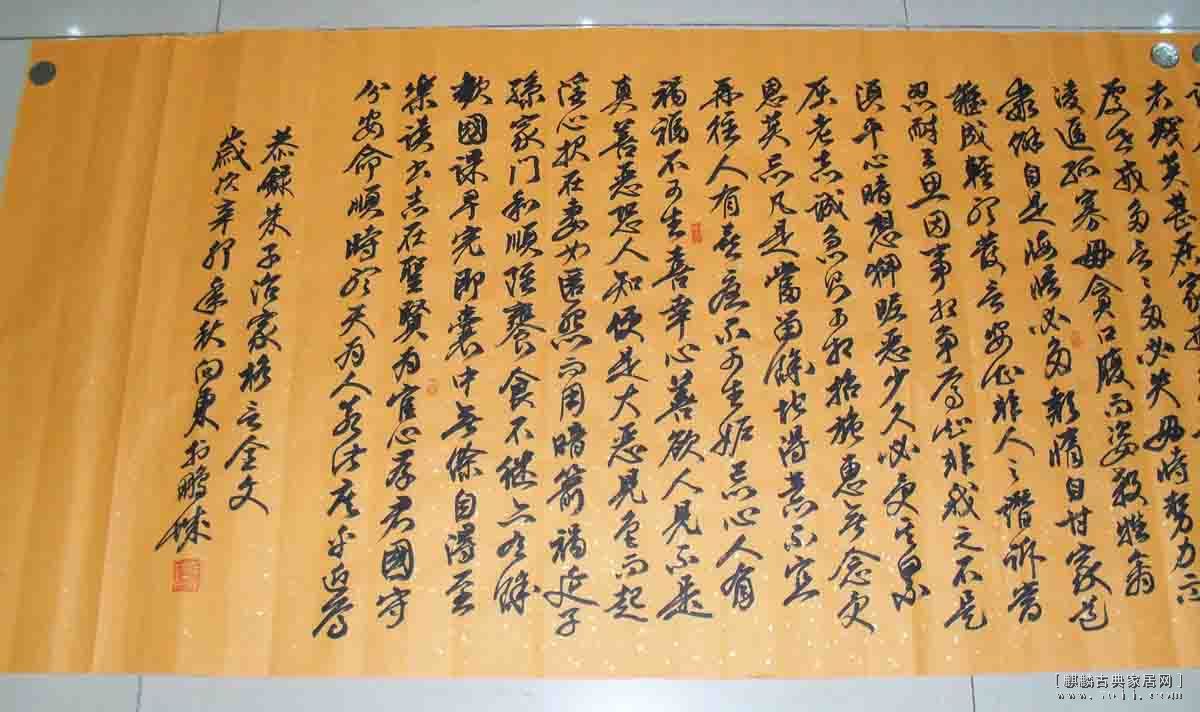 者賤莫甚居家
處世戒多言言多必失毋恃勢力而
凌逼孤寡毋貪口腹而恣殺牲禽
乖僻自是悔悟必多頹惰自甘家道
難成輕聽發言安知非人之譖訴當
忍耐三思因事相爭焉知非我之不是
須平心暗想狎昵惡少久必受其累
屈老志誠急則可相依施惠無念受
恩莫忘凡是當留餘地得意不宜
再往人有喜慶不可生妒忌心人有
禍不可生喜幸心善欲人見不是
真善惡恐人知便是大惡見色而起
淫心報在妻女匿怨而用暗箭禍延子
孫家門和順雖饔食不继亦有餘
歡國課早完即囊中無餘自得至
樂讀書志在聖賢為官心存君國守
分安命順時聽天為人若此庶乎近焉
恭錄朱子治家格言全文
歲次辛卯年秋向東於鵬城
[麒麟古典家居网]